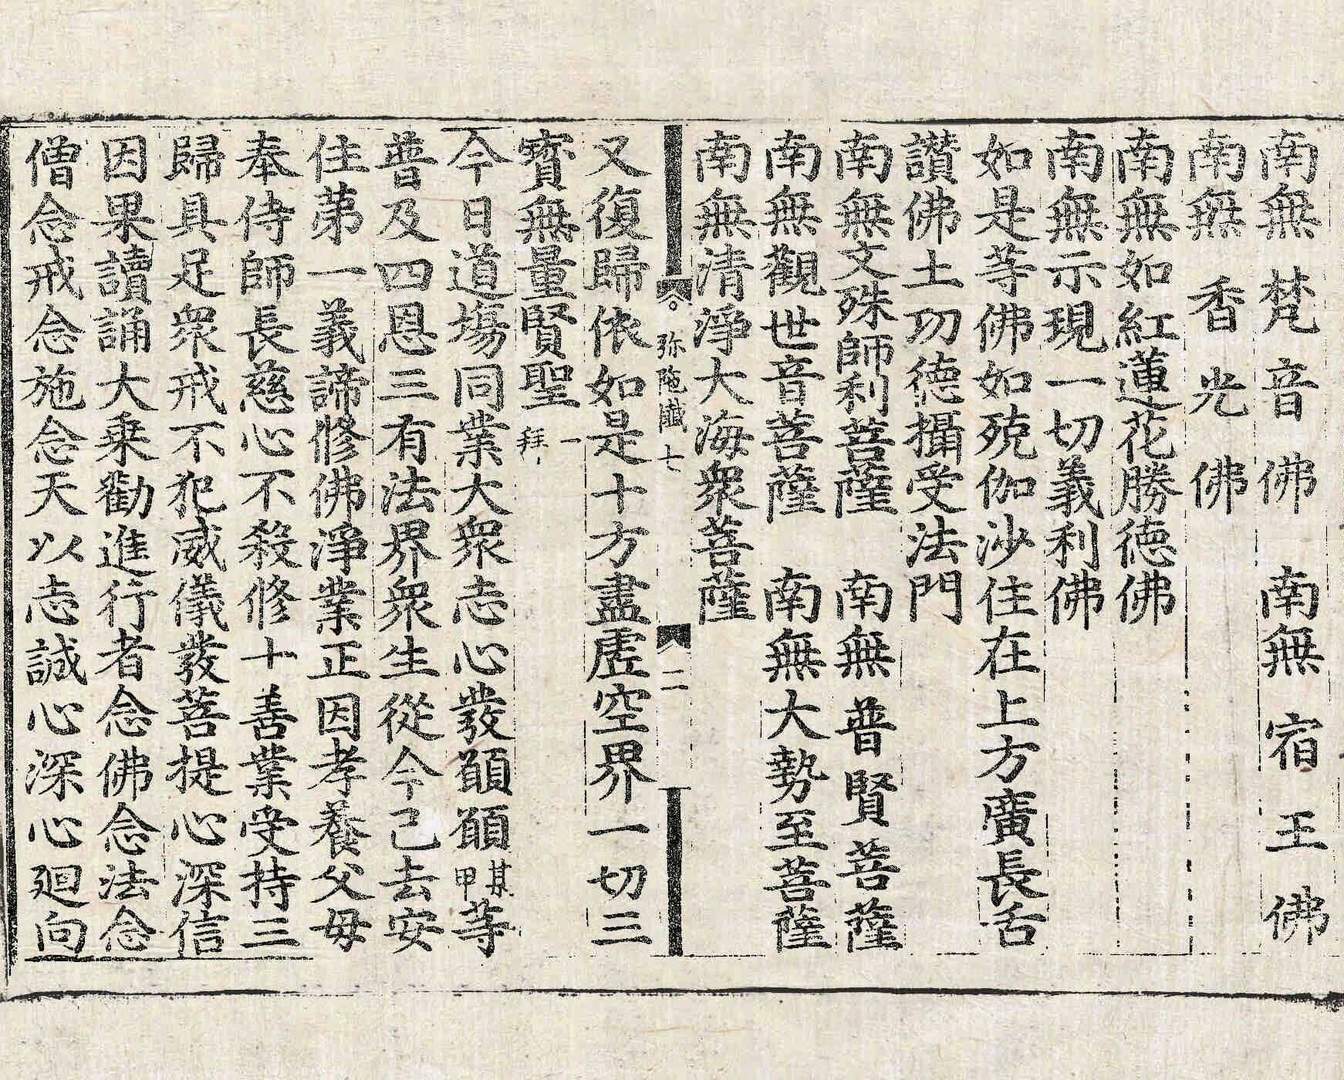 南無梵音佛　南無宿王佛
南無香光佛
南無如紅蓮花勝德佛
南無示現一切義利佛
如是等佛如殑伽沙住在上方廣長舌
讚佛土功德攝受法門
南無文殊師利菩薩　南無普賢菩薩
南無觀世音菩薩　南無大勢至菩薩
南無清淨大海衆菩薩
弥陁懺七　二
又復歸依如是十方盡虛空界一切三
寶無量賢聖一拜
今日道場同業大衆志心發願願某甲等
普及四恩三有法界衆生從今已去安
住苐一義諦修佛淨業正因孝養父母
奉侍師長慈心不殺修十善業受持三
歸具足衆戒不犯威儀發菩提心深信
因果讀誦大乗勸進行者念佛念法念
僧念戒念施念天以志誠心深心廻向